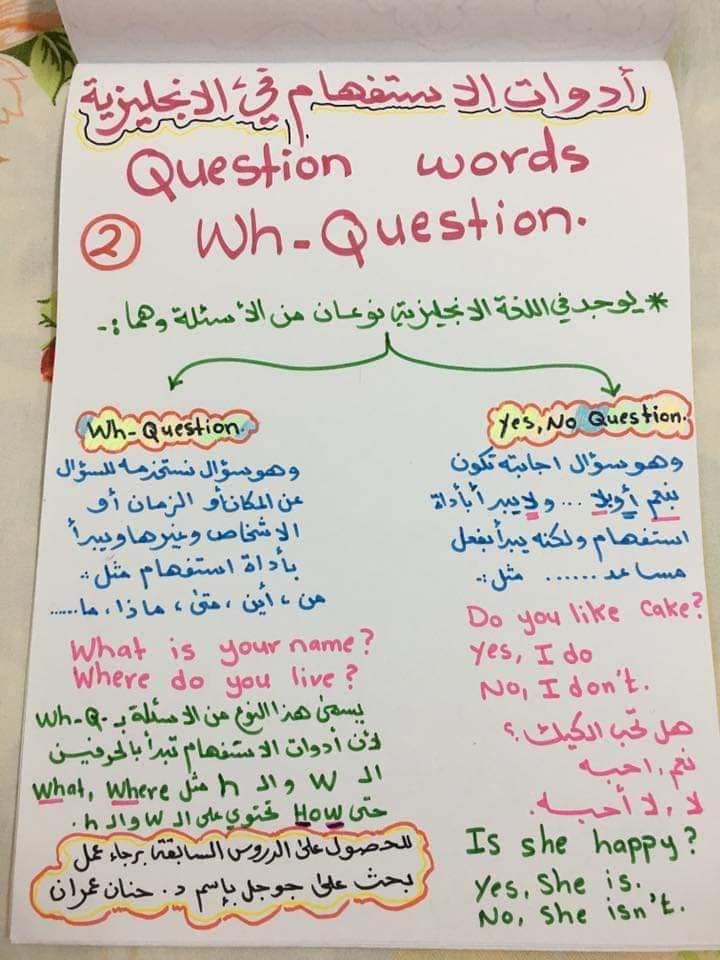 أدوات الاستفهام في الانجليزية
Question words
② Wh-Question.
* يوجد في اللغة الانجليزية نوعان من الأسئلة وهما :-
Yes, No Question.
وهو سؤال اجابته تكون
بنعم أوبلا ... ولا يبدأ بأداة
استفهام ولكنه يبدأ بفعل
مساعد ...... مثل :-
Do you like cake?
Yes, I do
No, I don't.
هل تحب الكيك ؟
نعم، احبه
لا، لا أحبه.
Is she happy?
Yes, She is.
No, she isn't.
Wh-Question.
وهو سؤال نستخدمه للسؤال
عن المكان أو الزمان أو
الاشخاص وغيرها ويبدأ
بأداة استفهام مثل :-
من، أين، متى، ماذا، ما......
What is your name?
Where do you live?
يسمى هذا النوع من الاسئلة بـ Wh-Q-
لأن أدوات الاستفهام تبدأ بالحرفين
الـ W والـ h مثل What, Where
حتى How تحتوي على الـ W والـ h.
للحصول على الدروس السابقة برجاء عمل
بحث على جوجل بإسم د. حنان عمران